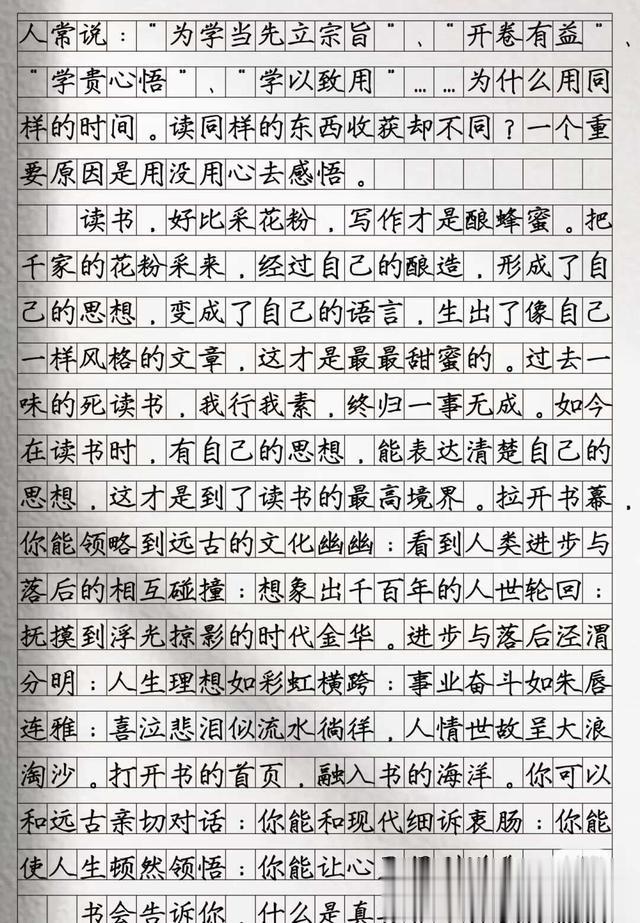 人常说："为学当先立宗旨"、"开卷有益"、
"学贵心悟"、"学以致用"……为什么用同
样的时间。读同样的东西收获却不同？一个重
要原因是用没用心去感悟。
读书，好比采花粉，写作才是酿蜂蜜。把
千家的花粉采来，经过自己的酿造，形成了自
己的思想，变成了自己的语言，生出了像自己
一样风格的文章，这才是最最甜蜜的。过去一
味的死读书，我行我素，终归一事无成。如今
在读书时，有自己的思想，能表达清楚自己的
思想，这才是到了读书的最高境界。拉开书幕，
你能领略到远古的文化幽幽：看到人类进步与
落后的相互碰撞：想象出千百年的人世轮回：
抚摸到浮光掠影的时代金华。进步与落后泾渭
分明：人生理想如彩虹横跨：事业奋斗如朱唇
连雅：喜泣悲泪似流水徜徉，人情世故呈大浪
淘沙。打开书的首页，融入书的海洋。你可以
和远古亲切对话：你能和现代细诉衷肠：你能
使人生顿然领悟：你能让心
书会告诉你，什么是真